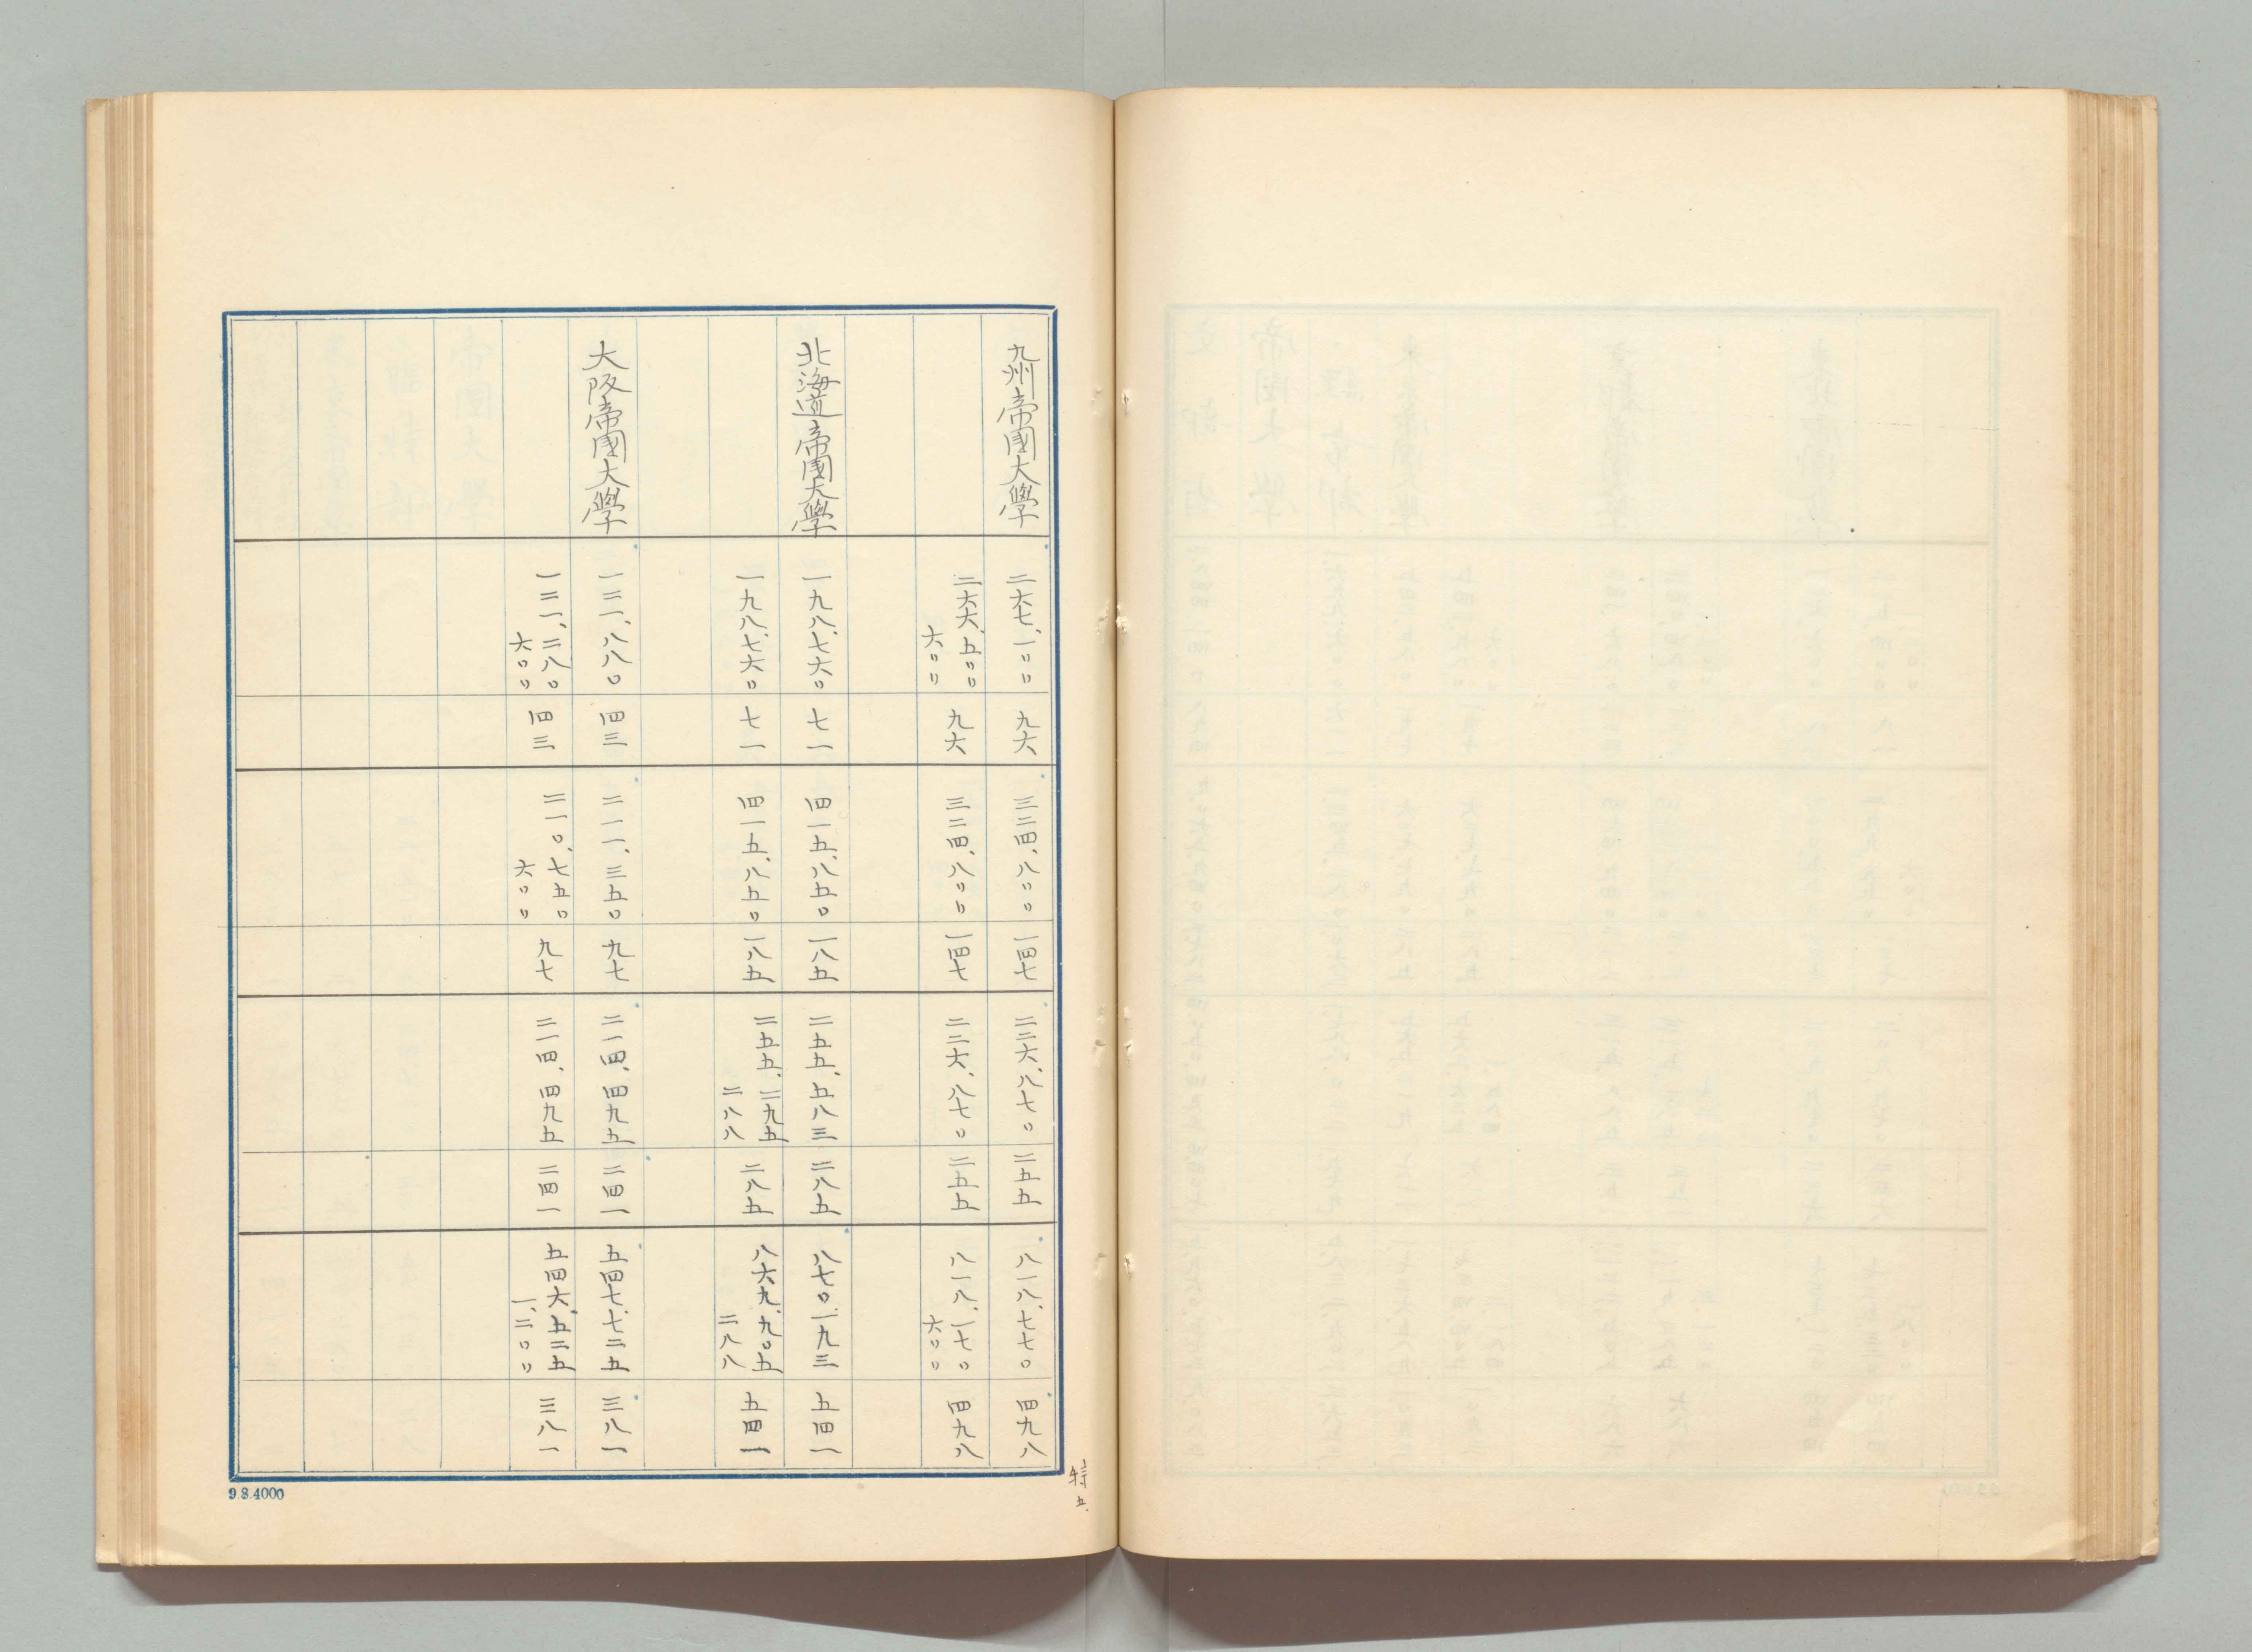 九州帝國大學 二六七、一〇〇 九六 三二四、八〇〇 一四七 二二六、八七〇 二五五 八一八、七七〇 四九八
二六六、五〇〇 九六 三二四、八〇〇 一四七 二二六、八七〇 二五五 八一八、一七〇 四九八
六〇〇 六〇〇
北海道帝國大學 一九八、七六〇 七一 四一五、八五〇 一八五 二五五、五八三 二八五 八七〇、一九三 五四一
一九八、七六〇 七一 四一五、八五〇 一八五 二五五、二九五 二八五 八六九、九〇五 五四一
二八八 二八八
大阪帝國大學 一二一、八八〇 四三 二一一、三五〇 九七 二一四、四九五 二四一 五四七、七二五 三八一
一二一、二八〇 四三 二一〇、七五〇 九七 二一四、四九五 二四一 五四六、五二五 三八一
六〇〇 六〇〇 一、二〇〇
特五
9.8.4000